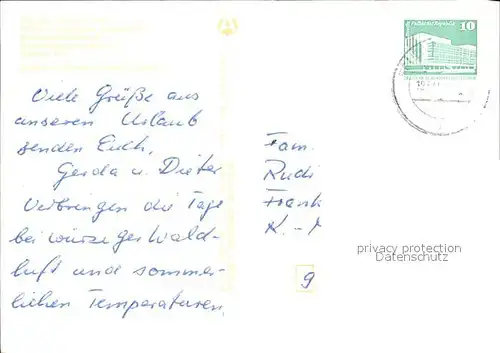 Viele Grüße aus
unseren Urlaub
senden Euch,
Gerda u. Dieter
Verbringen die Tage
bei würziger Wald-
luft und sommer-
lichen Temperaturen.
10
Fam.
Rudi
Frank
K.-M
9
privacy protection
Datenschutz